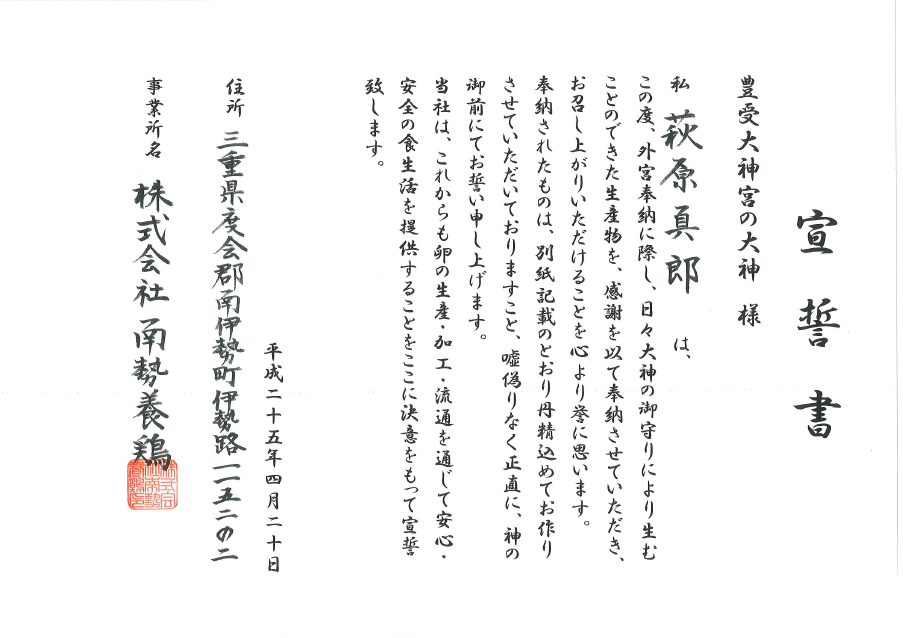 宣誓書
豊受大神宮の大神 様
私 萩原真郎 は、
この度、外宮奉納に際し、日々大神の御守りにより生む
ことのできた生産物を、感謝を以て奉納させていただき、
お召し上がりいただけることを心より誉に思います。
奉納されたものは、別紙記載のとおり丹精込めてお作り
させていただいておりますこと、嘘偽りなく正直に、神の
御前にてお誓い申し上げます。
当社は、これからも卵の生産・加工・流通を通じて安心・
安全の食生活を提供することをここに決意をもって宣誓
致します。
平成二十五年四月二十日
住所 三重県度会郡南伊勢町伊勢路一一五二の二
事業所名 株式会社 南勢養鶏